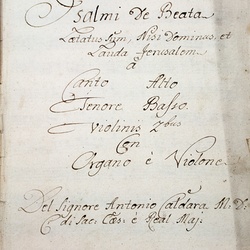 Psalmi De Beata
Lætatus sum, Nisi Dominus, et
Lauda Jerusalem
à
Canto Alto
Tenore Basso
Violinis 2bus
Con
Organo è Violone
Del Signore Antonio Caldara M: Di C:
di Sac: Ces: è Real Maj: